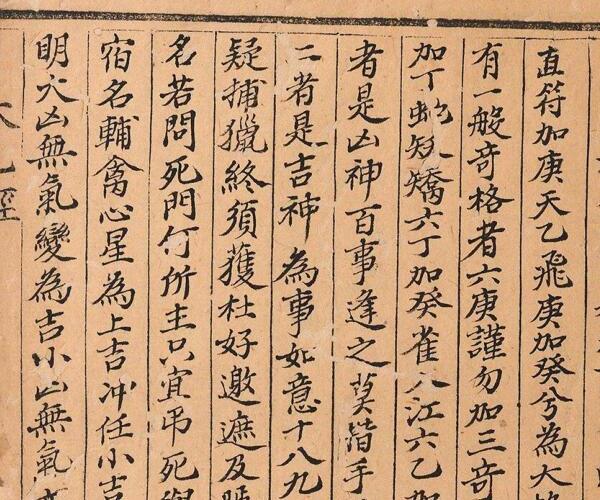 直符加庚天乙飛庚加癸兮為大
有一般奇格者六庚謹勿加三奇
加丁蛇矩矯六丁加癸雀入江六乙加
者是凶神百事逢之莫措手
二者是吉神為事如意十八九
疑捕獵終須獲杜好邀遮及
名若問死門何所主只宜弔死
宿名輔禽心星為上吉冲任小吉
明大凶無氣變為吉小凶無氣